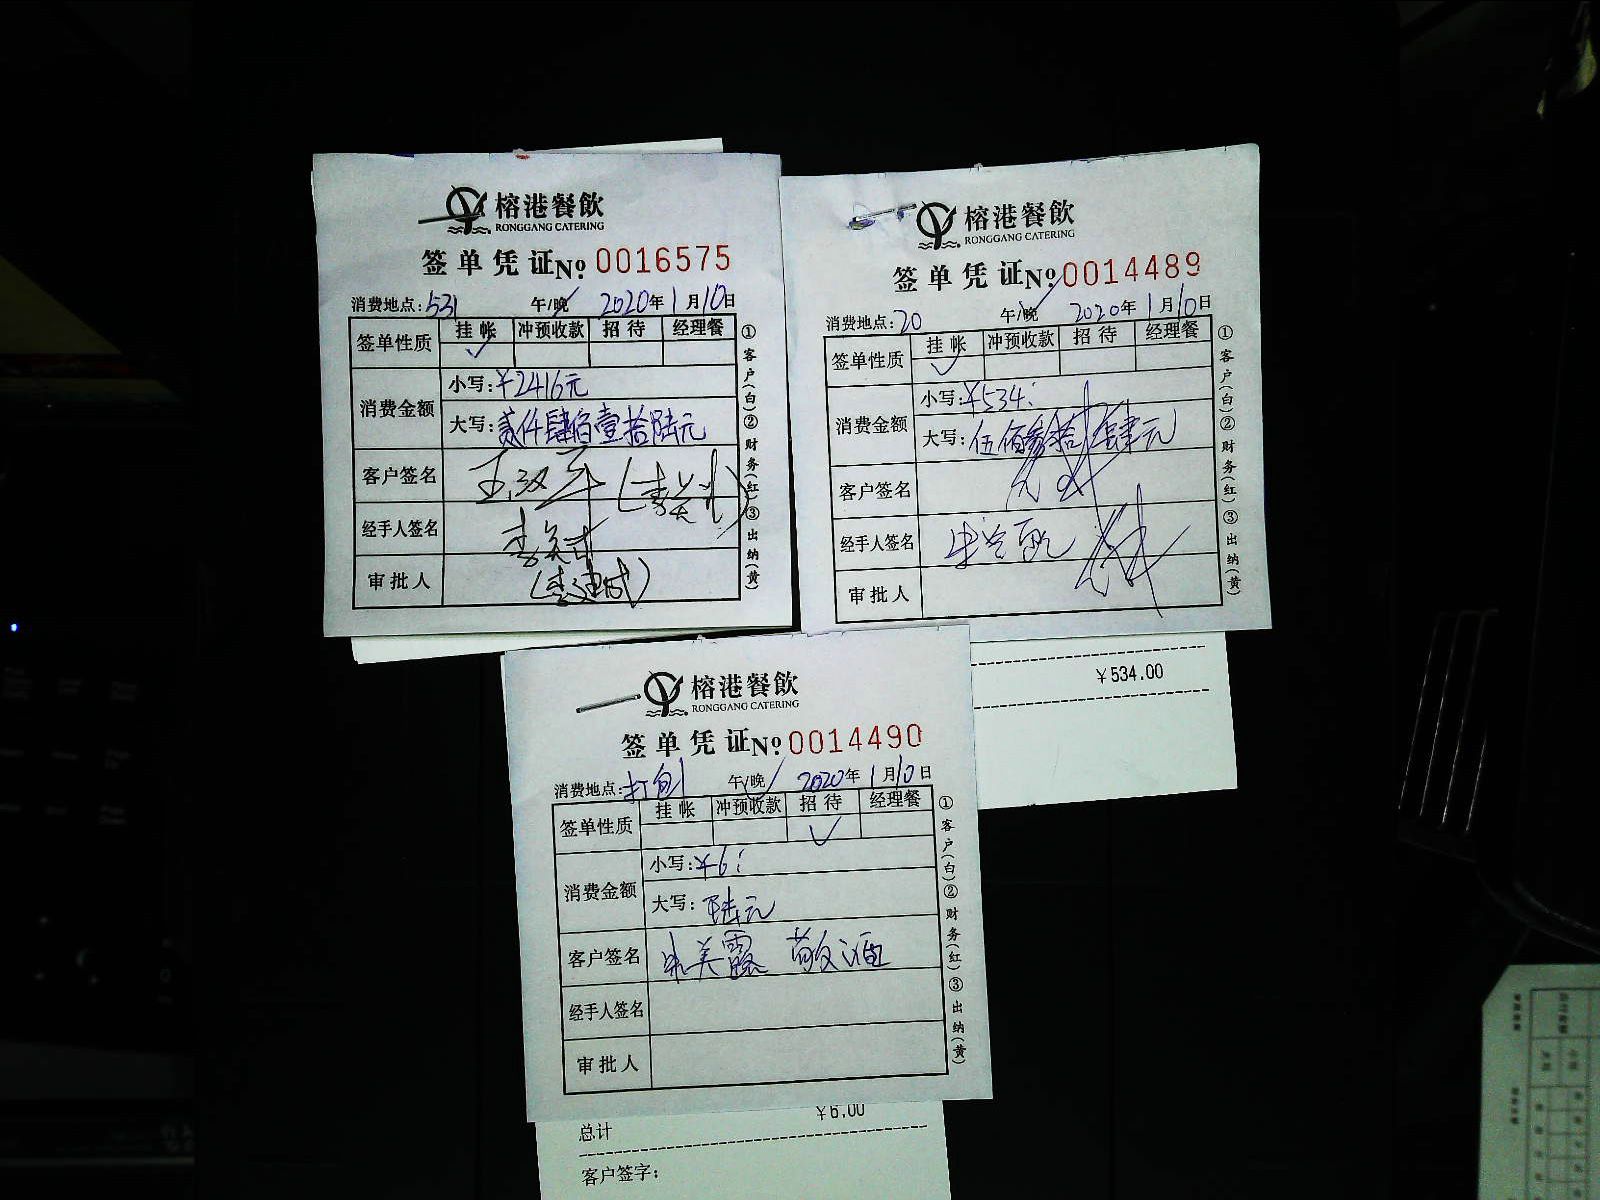 榕港餐飲
RONGGANG CATERING
签单凭证№ 0016575
消费地点:531 午/晚 2020年1月10日
签单性质 挂帐 冲预收款 招待 经理餐
✓
消费金额 小写:¥2416元
大写:贰仟肆佰壹拾陆元
客户签名
经手人签名
审批人
①客户(白)②财务(红)③出纳(黄)
榕港餐飲
RONGGANG CATERING
签单凭证№ 0014489
消费地点:20 午/晚 2020年1月10日
签单性质 挂帐 冲预收款 招待 经理餐
✓
消费金额 小写:¥534:
大写:伍佰叁拾肆元
客户签名
经手人签名
审批人
①客户(白)②财务(红)③出纳(黄)
¥534.00
榕港餐飲
RONGGANG CATERING
签单凭证№ 0014490
消费地点:打包1 午/晚 2020年1月10日
签单性质 挂帐 冲预收款 招待 经理餐
✓
消费金额 小写:¥6:
大写:陆元
客户签名 朱美霞 敬酒
经手人签名
审批人
①客户(白)②财务(红)③出纳(黄)
¥6.00
总计
客户签字: